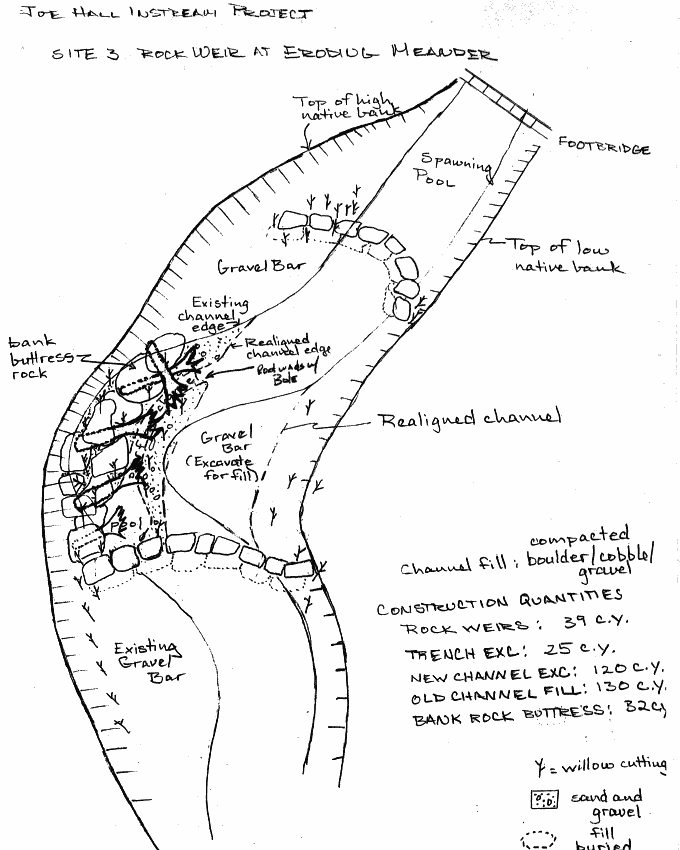 JOE HALL INSTREAM PROJECT
SITE 3 ROCK WEIR AT ERODING MEANDER
Top of high
native bank
FOOTBRIDGE
Spawning
POOL
Top of low
native bank
Gravel Bar
Existing
channel
edge
bank
buttress
rock
Realigned
channel edge
Rootwads w/
Bolts
Realigned channel
Gravel
Bar
(Excavate
for fill)
Pool
Channel fill: compacted
boulder/cobble/
gravel
CONSTRUCTION QUANTITIES
ROCK WEIRS: 39 C.Y.
TRENCH EXC: 25 C.Y.
NEW CHANNEL EXC: 120 C.Y.
OLD CHANNEL FILL: 130 C.Y.
BANK ROCK BUTTRESS: 32 cy
Existing
Gravel
Bar
= willow cutting
sand and
gravel
fill
buried